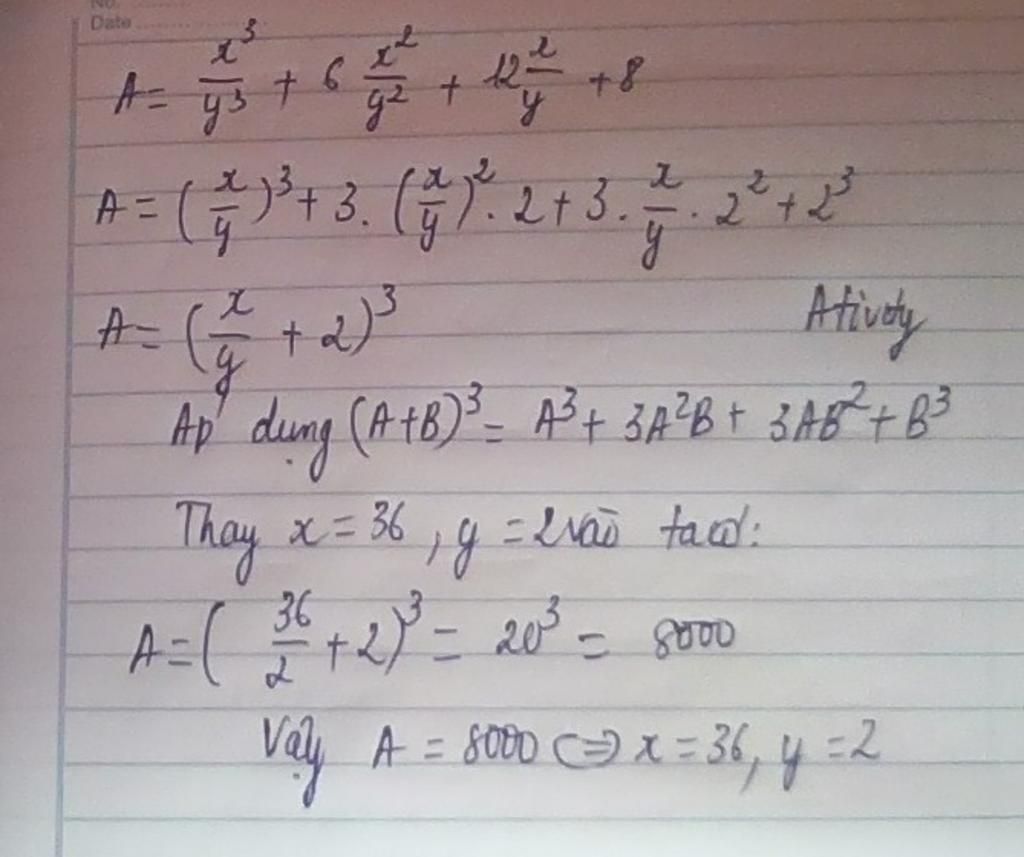 No.
Date
A = x³/y³ + 6 x²/y² + 12 x/y + 8
A = (x/y)³ + 3. (x/y)². 2 + 3. x/y. 2² + 2³
A = (x/y + 2)³
Ativoty
Áp dụng (A+B)³ = A³ + 3A²B + 3AB² + B³
Thay x = 36, y = 2 vào ta có:
A = (36/2 + 2)³ = 20³ = 8000
Vậy A = 8000 ⇔ x = 36, y = 2